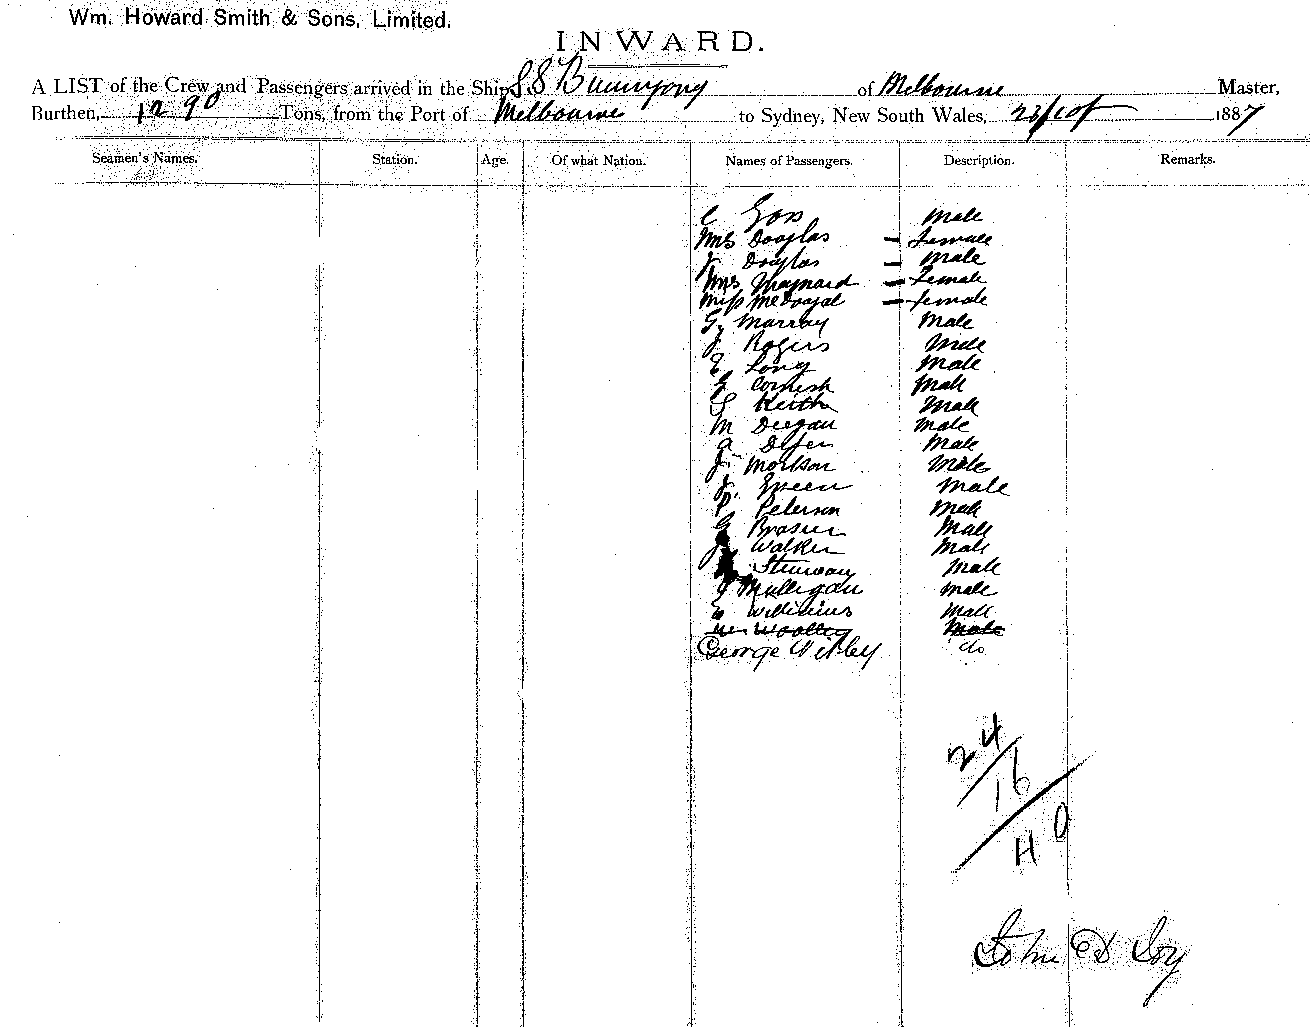 Wm. Howard Smith & Sons, Limited.
INWARD.
A LIST of the Crew and Passengers arrived in the Ship SS Buninyong of Melbourne Master,
Burthen, 1290 Tons, from the Port of Melbourne to Sydney, New South Wales, 1887
Seamen's Names. Station. Age. Of what Nation. Names of Passengers. Description. Remarks.
C Male
Mrs Douglas – Female
J Douglas – Male
Mrs Maynard – Female
Miss – female
G. Murray Male
J Rogers Male
E Long Male
G Cornish Male
S Keith Male
M Deegan Male
a Male
J Male
J. Green Male
P. Peterson Male
G Brasier Male
J Walker Male
Male
J Mulligan Male
E Williams Male
W Woolley Male
George do
24
16
40
John